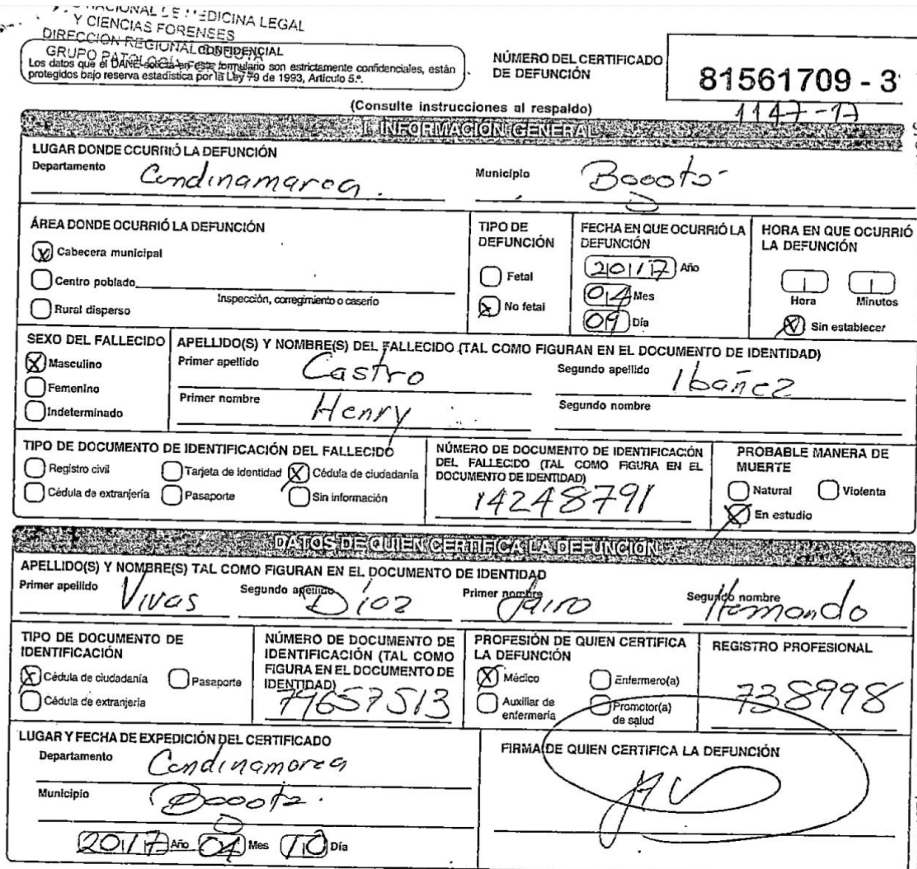 NACIONAL DE MEDICINA LEGAL
Y CIENCIAS FORENSES
DIRECCION REGIONAL
GRUPO PATOLOGIA
CONFIDENCIAL
Los datos que el DANE solicita en este formulario son estrictamente confidenciales, están
protegidos bajo reserva estadística por la Ley 79 de 1993, Artículo 5º.
NÚMERO DEL CERTIFICADO
DE DEFUNCIÓN
81561709 - 3
1147-17
(Consulte instrucciones al respaldo)
I. INFORMACIÓN GENERAL
LUGAR DONDE OCURRIÓ LA DEFUNCIÓN
Departamento Cundinamarca. Municipio Bogotá
ÁREA DONDE OCURRIÓ LA DEFUNCIÓN
X Cabecera municipal
Centro poblado
Inspección, corregimiento o caserío
Rural disperso
TIPO DE
DEFUNCIÓN
Fetal
X No fetal
FECHA EN QUE OCURRIÓ LA
DEFUNCIÓN
2017 Año
04 Mes
09 Día
HORA EN QUE OCURRIÓ
LA DEFUNCIÓN
Hora Minutos
X Sin establecer
SEXO DEL FALLECIDO
X Masculino
Femenino
Indeterminado
APELLIDO(S) Y NOMBRE(S) DEL FALLECIDO (TAL COMO FIGURAN EN EL DOCUMENTO DE IDENTIDAD)
Primer apellido Castro Segundo apellido Ibáñez
Primer nombre Henry Segundo nombre
TIPO DE DOCUMENTO DE IDENTIFICACIÓN DEL FALLECIDO
Registro civil Tarjeta de identidad X Cédula de ciudadanía
Cédula de extranjería Pasaporte Sin información
NÚMERO DE DOCUMENTO DE IDENTIFICACIÓN
DEL FALLECIDO (TAL COMO FIGURA EN EL
DOCUMENTO DE IDENTIDAD)
14248791
PROBABLE MANERA DE
MUERTE
Natural Violenta
X En estudio
DATOS DE QUIEN CERTIFICA LA DEFUNCIÓN
APELLIDO(S) Y NOMBRE(S) TAL COMO FIGURAN EN EL DOCUMENTO DE IDENTIDAD
Primer apellido Vivas Segundo apellido Díaz Primer nombre Jairo Segundo nombre Hernando
TIPO DE DOCUMENTO DE
IDENTIFICACIÓN
X Cédula de ciudadanía Pasaporte
Cédula de extranjería
NÚMERO DE DOCUMENTO DE
IDENTIFICACIÓN (TAL COMO
FIGURA EN EL DOCUMENTO DE
IDENTIDAD)
79657513
PROFESIÓN DE QUIEN CERTIFICA
LA DEFUNCIÓN
X Médico Enfermero(a)
Auxiliar de
enfermería
Promotor(a)
de salud
REGISTRO PROFESIONAL
738998
LUGAR Y FECHA DE EXPEDICIÓN DEL CERTIFICADO
Departamento Cundinamarca
Municipio Bogotá.
2017 Año 04 Mes 10 Día
FIRMA DE QUIEN CERTIFICA LA DEFUNCIÓN